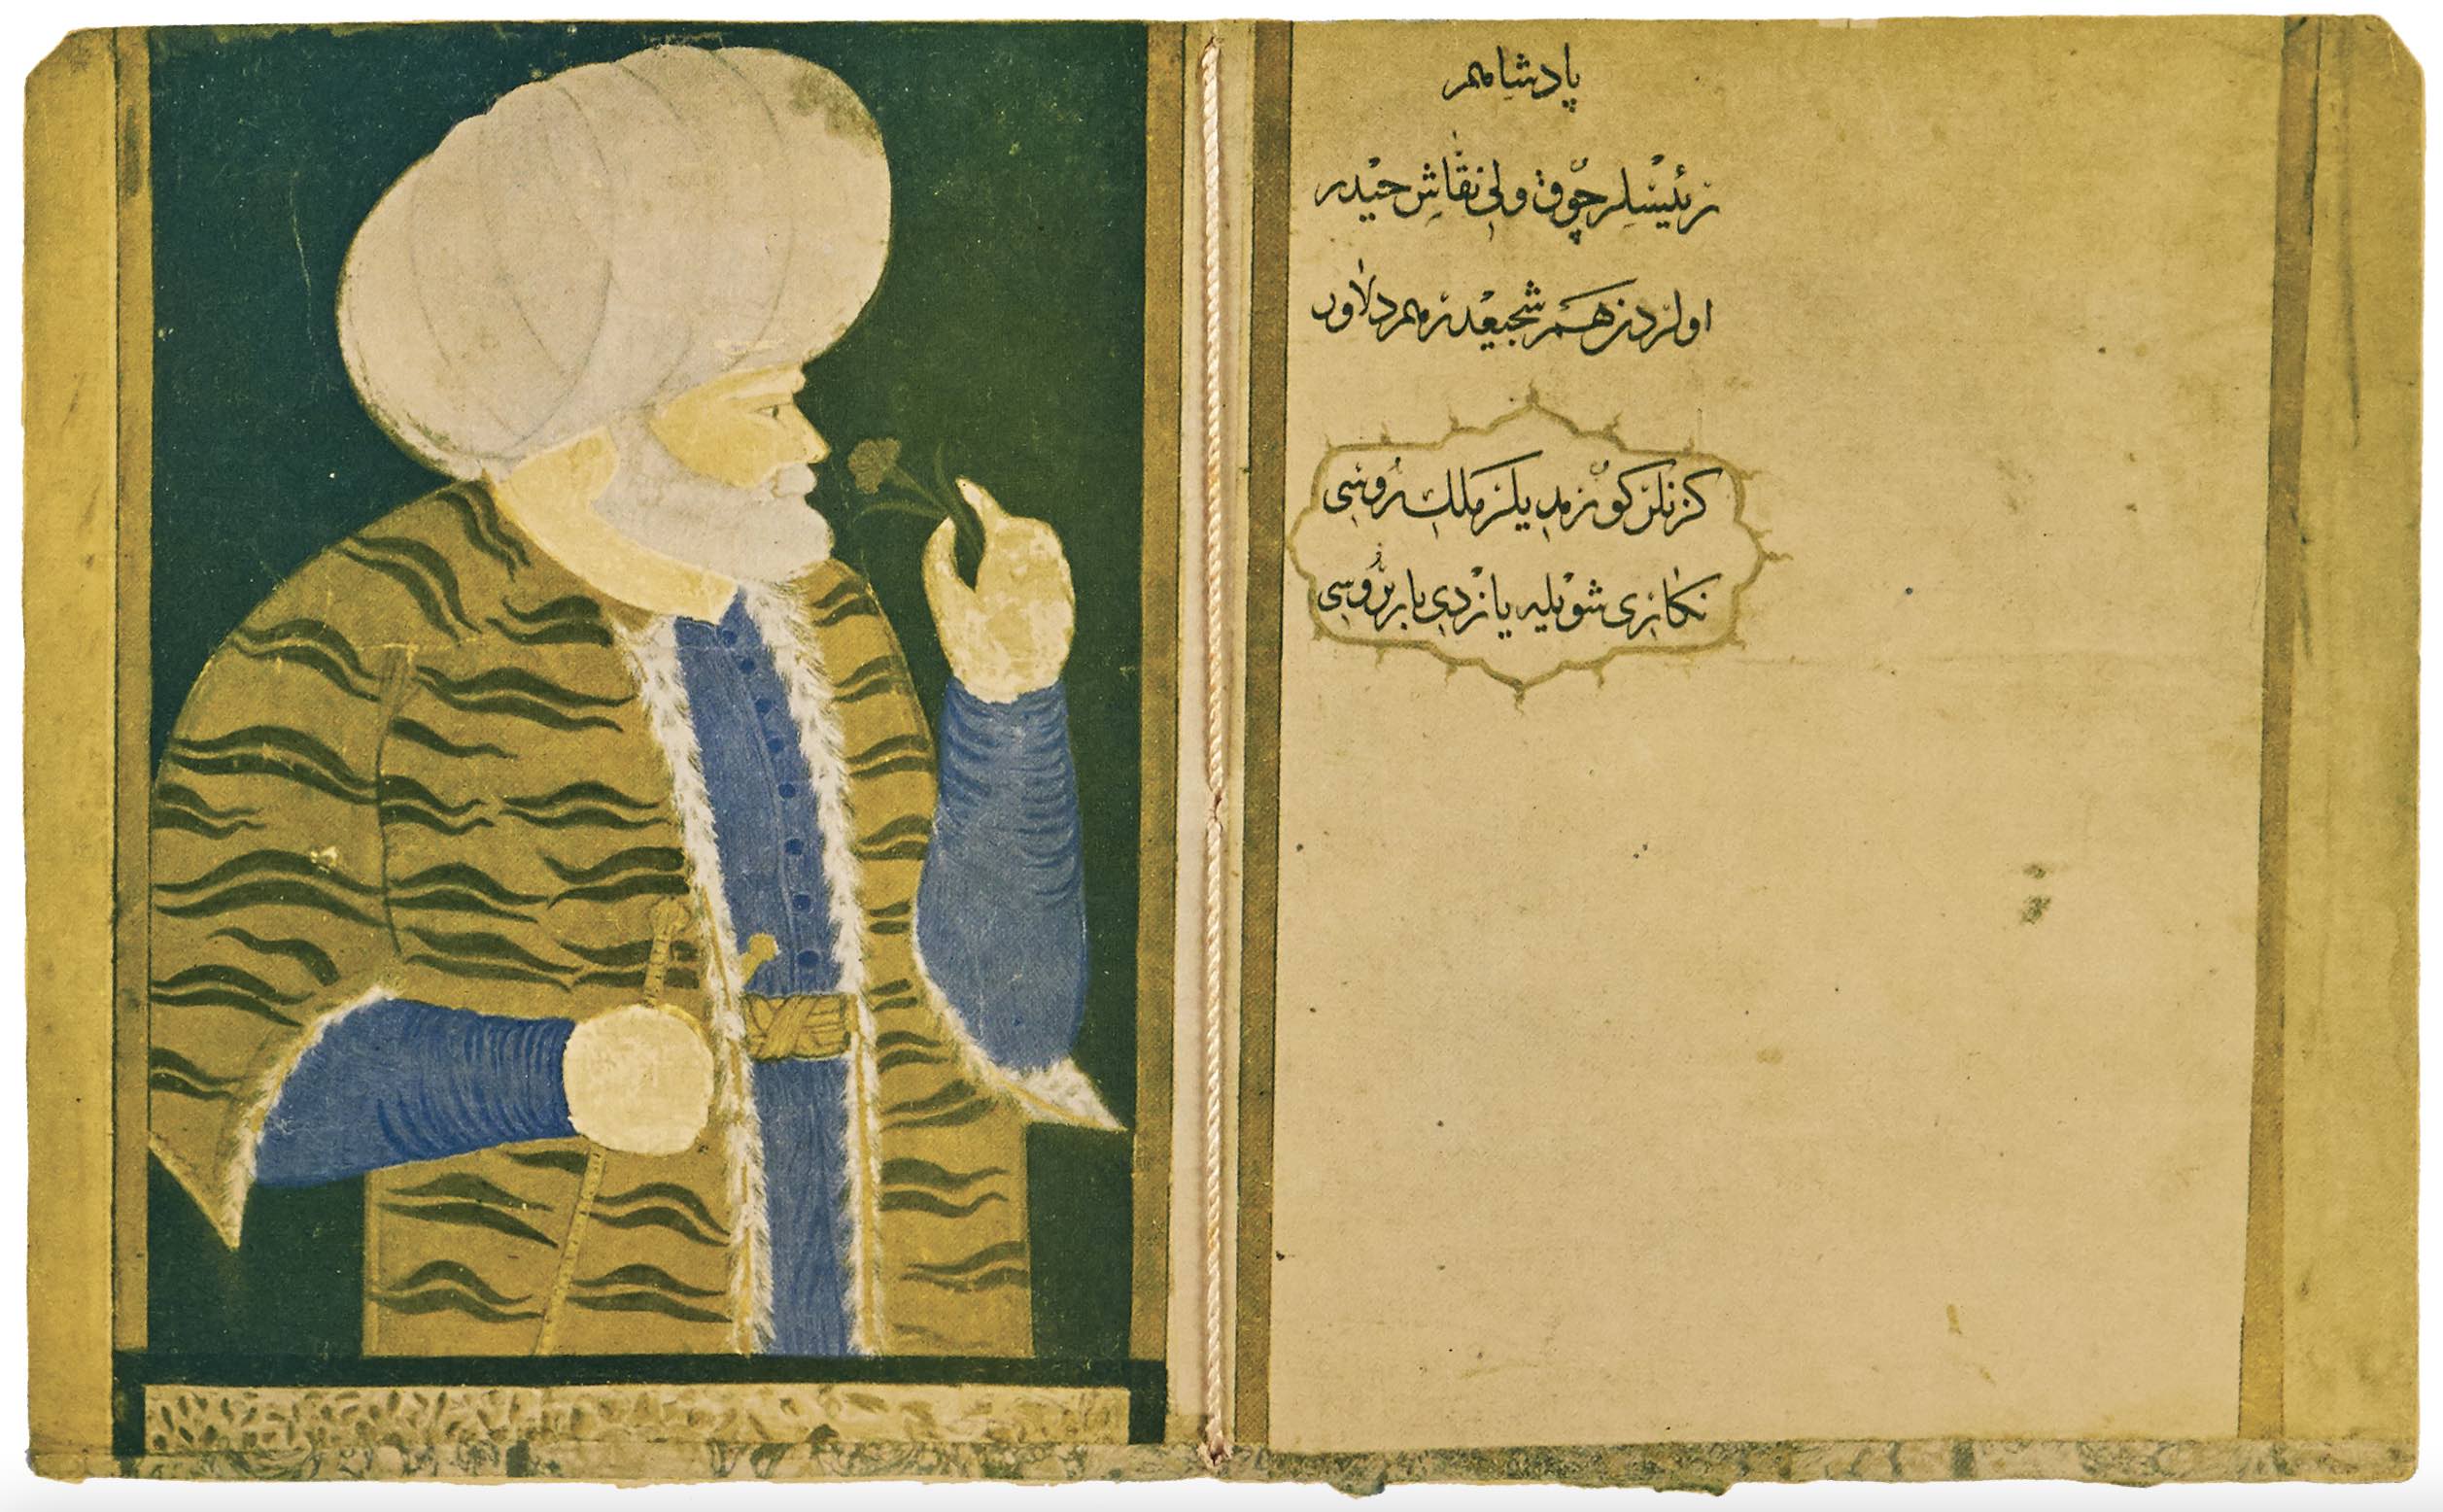 پادشاهم
رئیسلر چوق ولی نقاش حیدر
اولردن هم شجیعدر هم دلاور
کزنلر کورمدیلر ملك روسی
نکاری شویله یازدی باربروسی